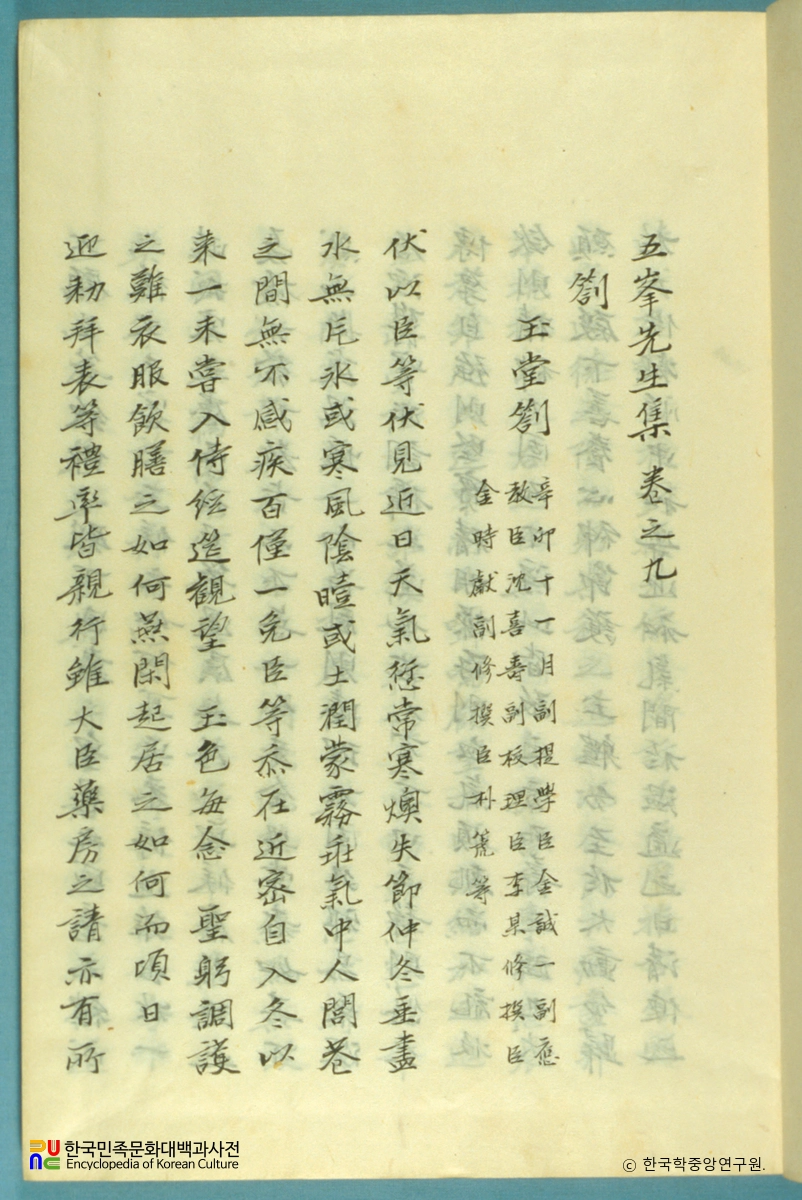 五峯先生集 卷之九
劄
玉堂劄 辛卯十一月副提學臣金誠一副應
教臣沈喜壽副校理臣李某修撰臣
金時獻副修撰臣朴篪等
伏以臣等伏見近日天氣愆常寒燠失節仲冬垂盡
水無片氷或寒風陰曀或土潤蒙霧乖氣中人閭巷
之間無不感疾百僅一免臣等忝在近密自入冬以
来一未嘗入侍經筵觀望 玉色每念 聖躬調護
之難衣服飮膳之如何燕閑起居之如何而頃日
迎勑拜表等禮率皆親行雖大臣藥房之請亦有所
한국민족문화대백과사전
Encyclopedia of Korean Culture
© 한국학중앙연구원.